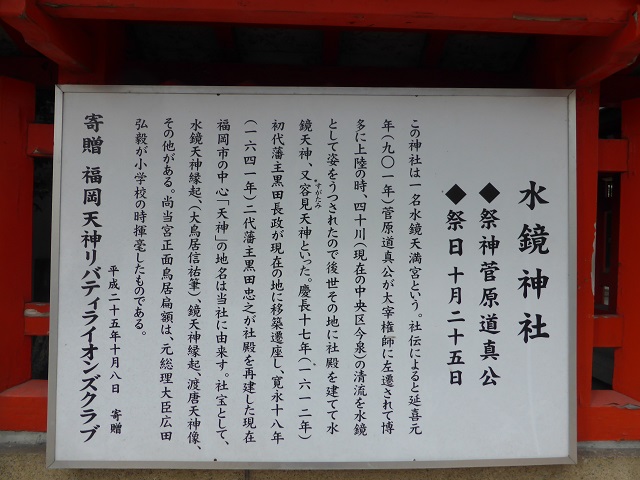 水鏡神社
◆祭神菅原道真公
◆祭日十月二十五日
この神社は一名水鏡天満宮という。社伝によると延喜元
年(九〇一年)菅原道真公が大宰権師に左遷されて博
多に上陸の時、四十川(現在の中央区今泉)の清流を水鏡
として姿をうつされたので後世その地に社殿を建てて水
鏡天神、又容見天神といった。慶長十七年(一六一二年)
すがたみ
初代藩主黒田長政が現在の地に移築遷座し、寛永十八年
(一六四一年)二代藩主黒田忠之が社殿を再建した現在
福岡市の中心「天神」の地名は当社に由来す。社宝として、
水鏡天神縁起、(大鳥居信祐筆)、鏡天神縁起、渡唐天神像、
その他がある。尚当宮正面鳥居扁額は、元総理大臣広田
弘毅が小学校の時揮毫したものである。
平成二十五年十月八日 寄贈
寄贈 福岡天神リバティライオンズクラブ